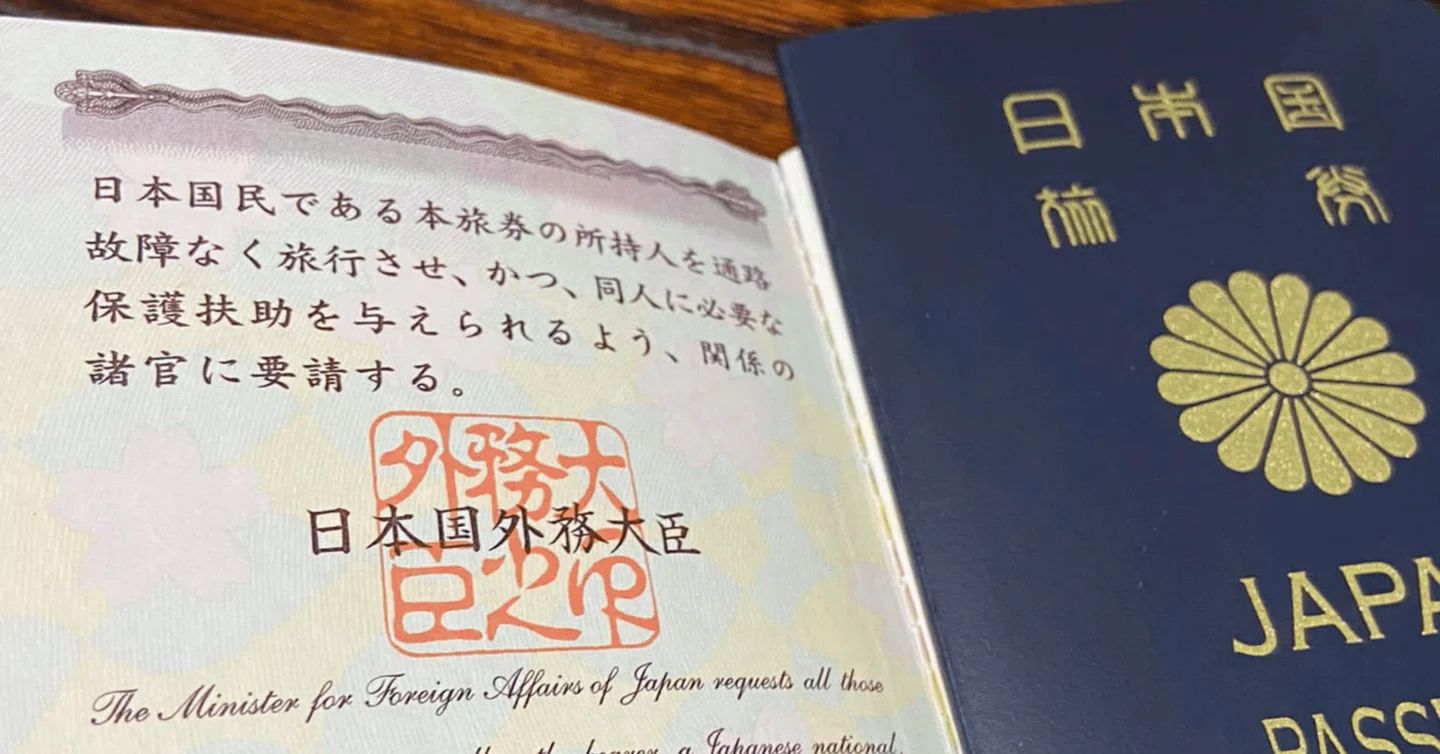 日本国民である本旅券の所持人を通路
故障なく旅行させ、かつ、同人に必要な
保護扶助を与えられるよう、関係の
諸官に要請する。
日本国外務大臣
外務大
臣之印
The Minister for Foreign Affairs of Japan requests all those
the bearer, a Japanese national,
日本国
旅券
JAPA
PASS